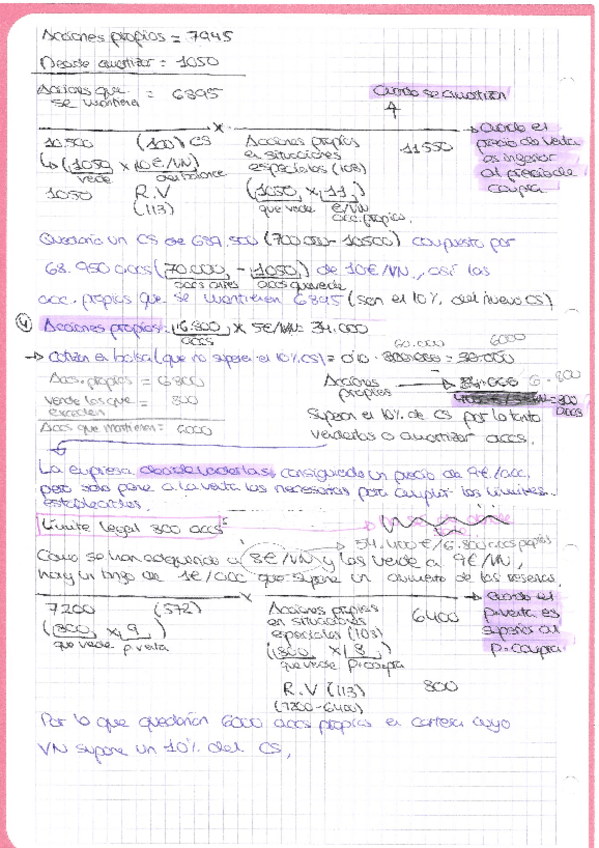 Acciones propias = 7945
Decide amortizar = 1050
Acciones que se mantiene = 6895
Cuando se amortizan
10500 (100) CS
(1050 x 10€/VN)
vende del balance
1050 R.V (113)
Acciones propias en situaciones especiales (108) 11550
(1050 x 11)
que vende €/VN acc. propias.
Cuando el precio de venta es inferior al precio de compra
Quedaría un CS de 689.500 (700.000 - 10500) compuesto por
68.950 accs (70.000 - 1050) de 10€/VN, así las
accs antes accs que vende
acc. propias que se mantienen 6895 (son el 10% del nuevo CS)
4 Acciones propias: (6.800 x 5€/VN = 34.000
accs
→ Cotiza en bolsa (que no supere el 10% CS) = 0'10 · 300.000 = 30.000
60.000 6000
Accs. propias = 6800
vende las que exceden = 800
Accs que mantienen = 6000
Acciones propias → 34.000 6.800
Superan el 10% de CS por lo tanto
venderlas o amortizar accs.
La empresa decide venderlas, consiguiendo un precio de 9€/acc.
pero solo pone a la venta las necesarias para cumplir los límites
establecidos.
Límite legal 800 accs
54.400€/6.800 accs propias
Como se han adquirido a 8€/VN y las vende a 9€/VN,
hay un de 1€/acc que supone un aumento de las reservas.
7200 (572)
(800 x 9)
que vende p.venta
Acciones propias en situaciones especiales (108) 6400
(800 x 8)
que vende p.compra
R.V (113) 800
(7200-6400)
Cuando el p.venta es superior al p.compra
Por lo que quedarían 6000 accs propias en cartera cuyo
VN supone un 10% del CS,